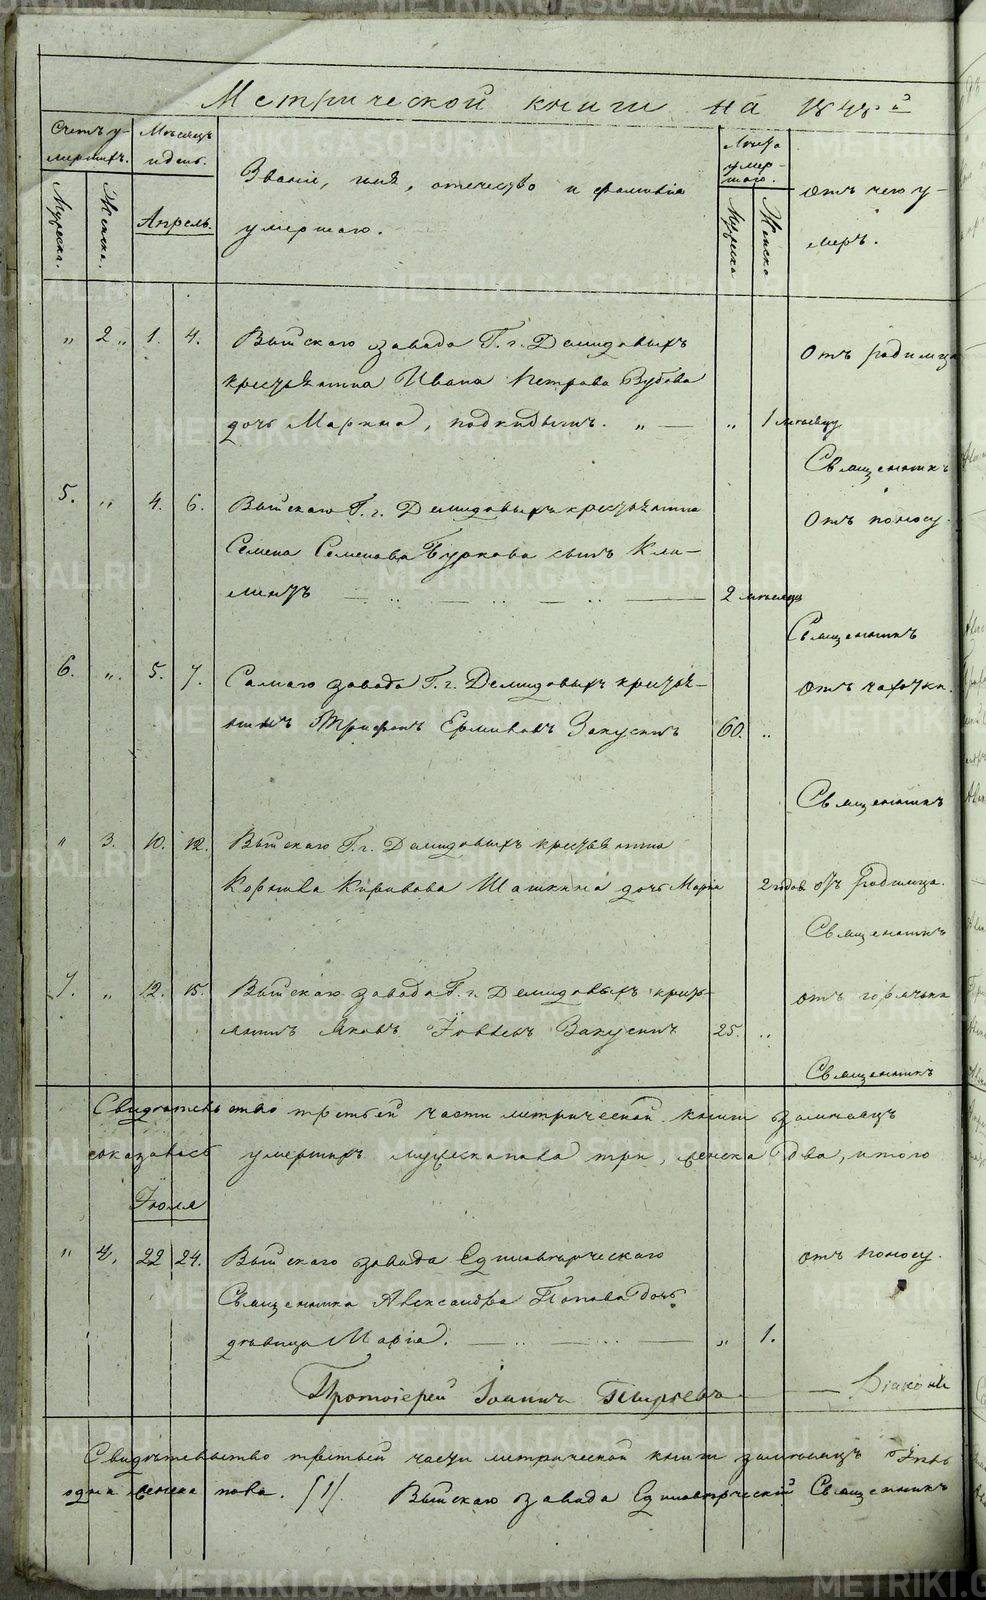 Метрической книги на 1848й
Счетъ у-
мершихъ.
Мѣсяцъ
и день.
Званіе, имя, отечество и фамилія
умершаго.
Лѣта
умер-
шаго.
отъ чего у-
меръ.
Мужеска.
Женска.
Апрель.
Мужеска
Женска
„ 2„ 1. 4. Выйскаго завода Г.г. Демидовыхъ
крестьянина Ивана Петрова Зубова
дочь Марина, подкидышъ. „ — „ 1 мѣсяцу
Отъ родимца
Священникъ
5. „ 4. 6. Выйскаго Г.г. Демидовыхъ крестьянина
Семена Семенова Буркова сынъ Кли-
ментъ 2 мѣсяца
Отъ поносу.
Священникъ
6. „. 5. 7. Самаго завода Г.г. Демидовыхъ кресть-
янинъ Трифонъ Ермиловъ Закускинъ 60. „
отъ чахотки.
Священникъ
„ 3. 10. 12. Выйскаго Г.г. Демидовыхъ крестьянина
Корнила Шашкина дочь Марія 2 годов отъ Родимца.
Священникъ
7. „ 12. 15. Выйскаго завода Г.г. Демидовыхъ кресть-
янинъ Яковъ Іовлевъ Закускинъ 25. „
отъ горячки
Священникъ
Свидѣтельство третьей части метрической книги
оказалось умершихъ мужеска пола три, женска два, итого
Іюля
„ 4. 22 24. Выйскаго завода Единовѣрческаго
Священника Александра Попова дочь
дѣвица Марія. „ 1.
отъ поносу.
Протоіерей Іоаннъ — Діаконъ
Свидѣтельство третьей части метрической книги
одна женска пола. /1/. Выйскаго завода Единовѣрческій Священникъ
METRIKI.GASO-URAL.RU